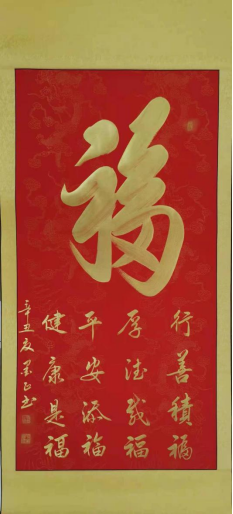 福
行善積福
厚德載福
平安添福
健康是福
辛丑友墨正书